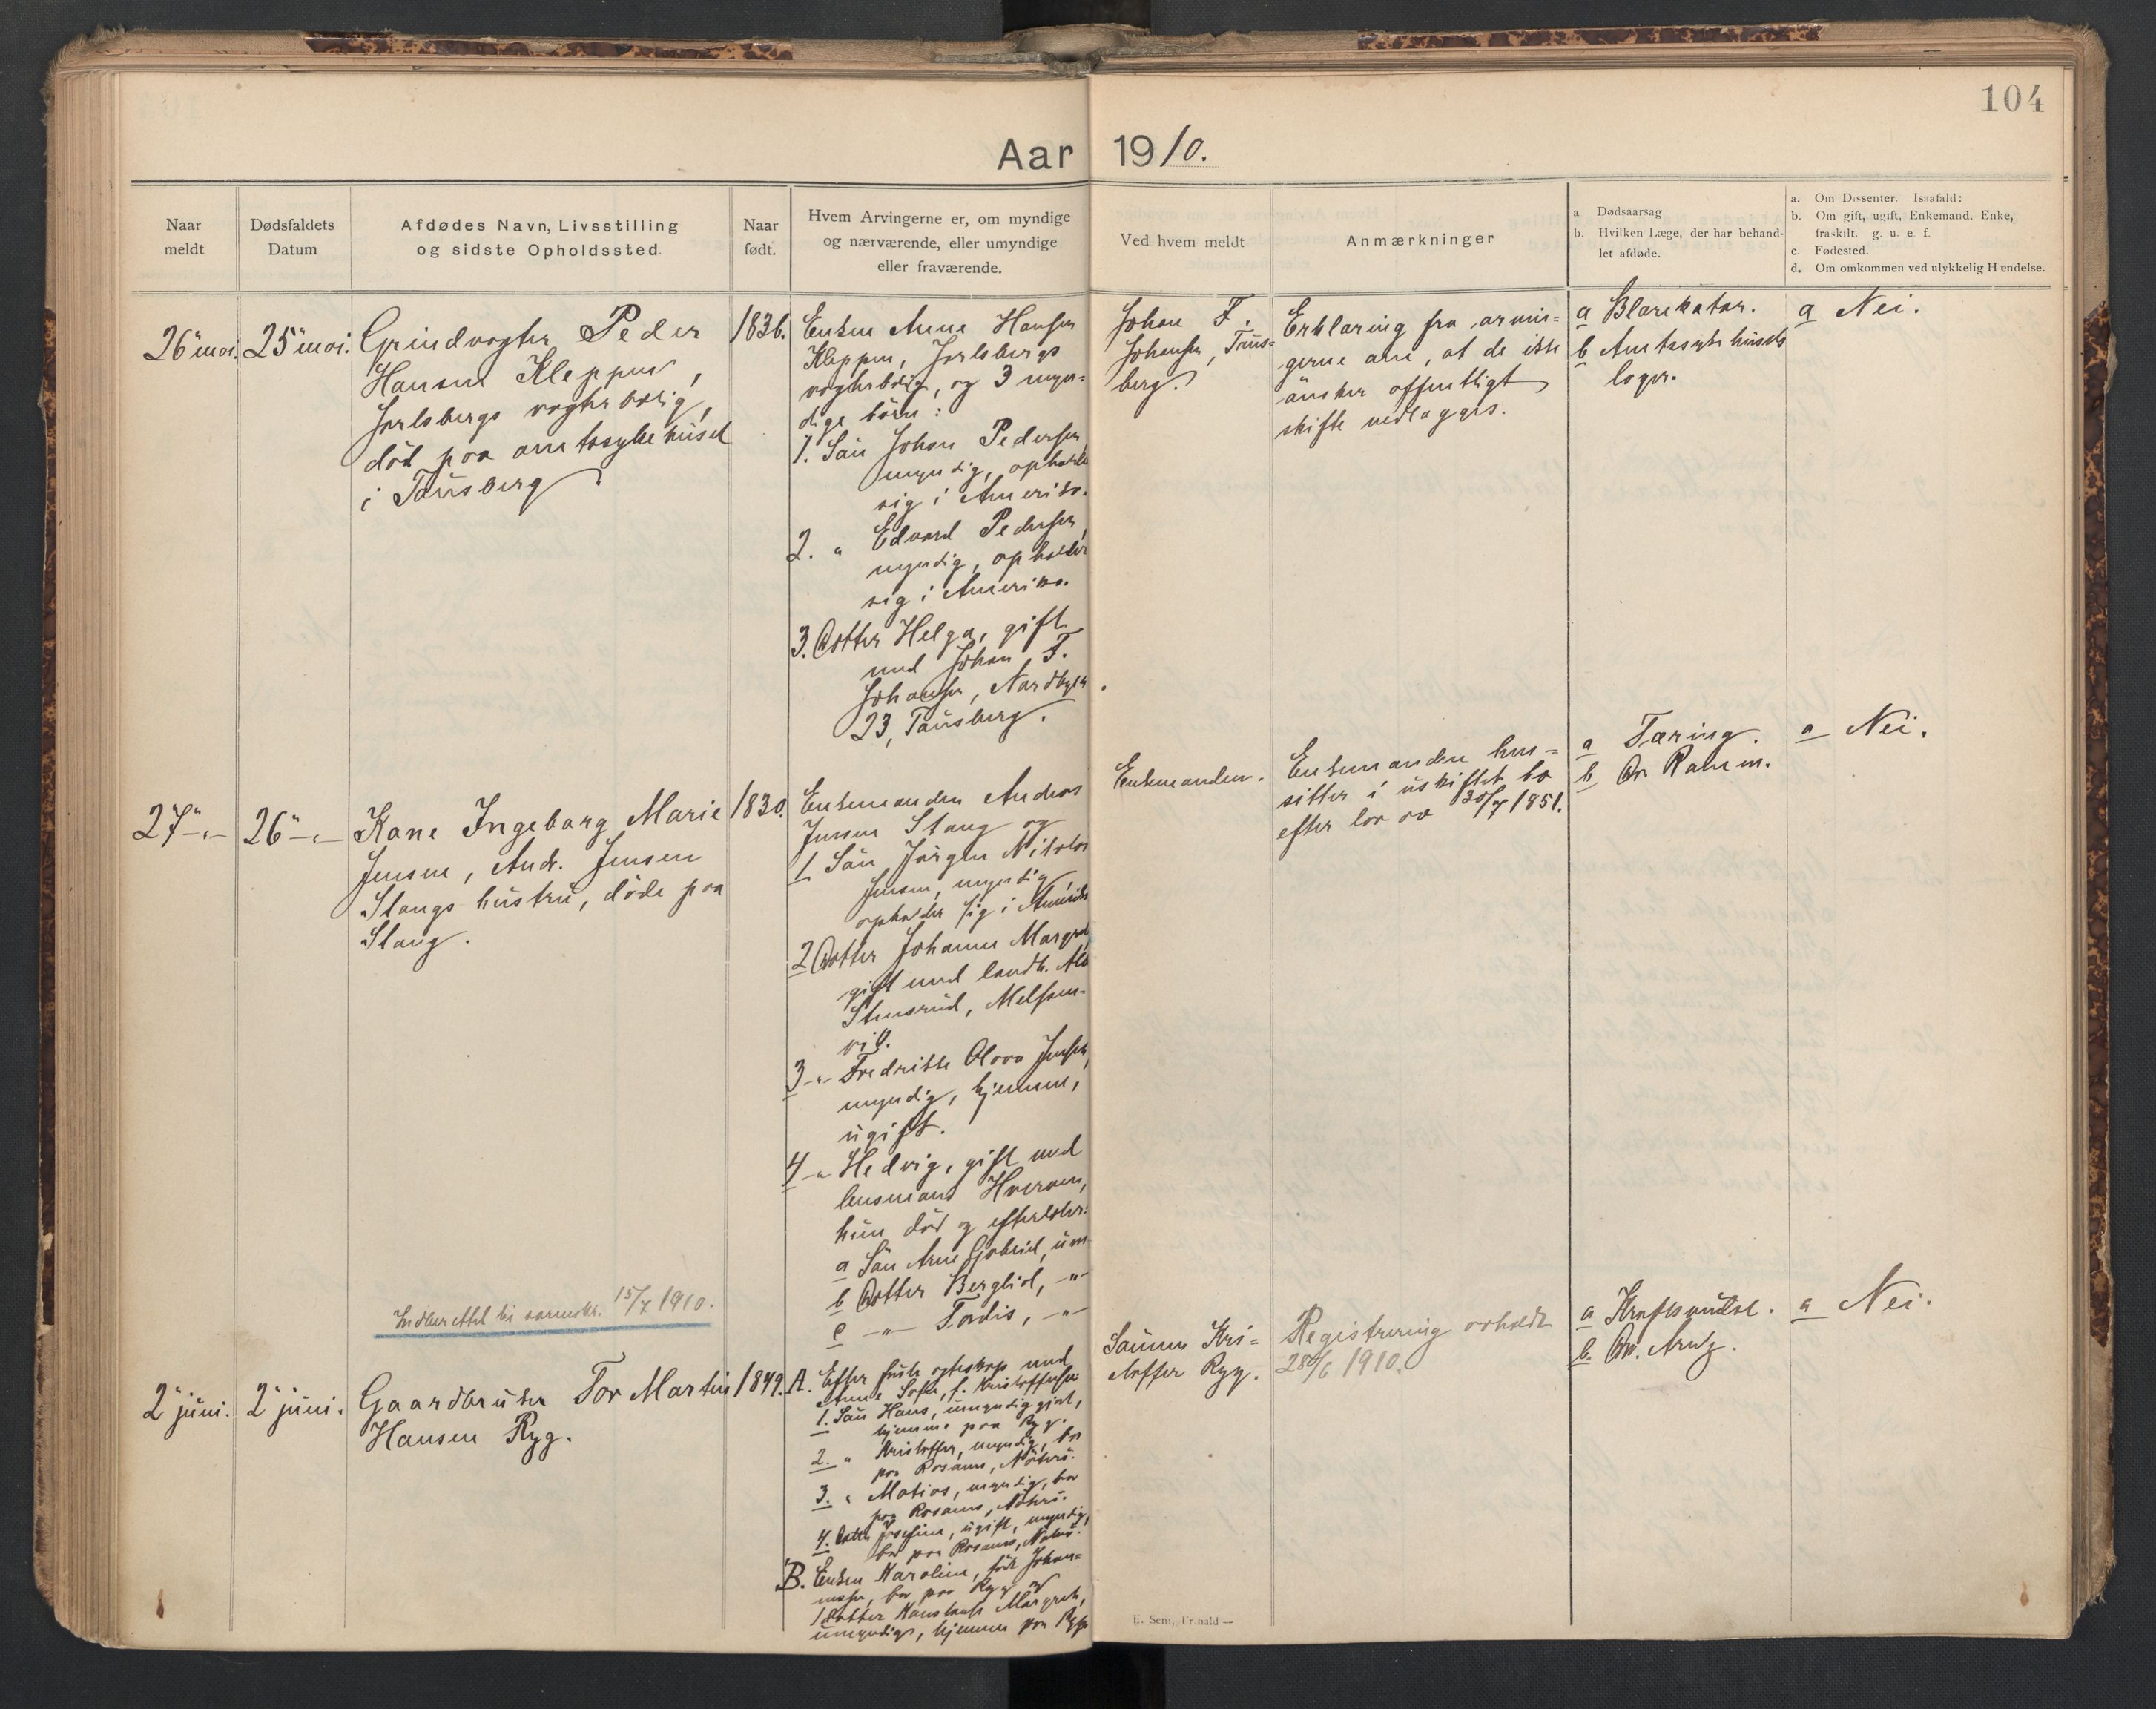 104
Aar 1910.
Naar meldt
Dødsfaldets Datum
Afdødes Navn, Livsstilling
og sidste Opholdssted.
Naar født.
Hvem Arvingerne er, om myndige
og nærværende, eller umyndige
eller fraværende.
Ved hvem meldt
Anmærkninger
a Dødsaarsag
b. Hvilken Læge, der har behand-
let afdøde.
a. Om Dissenter. Isaafald:
b. Om gift, ugift, Enkemand, Enke,
fraskilt. g. u. e. f.
c. Fødested.
d. Om omkommen ved ulykkelig Hendelse.
26 mai.
25 mai.
Grindvogter Peder
Hansen Kleppen,
Jarlsbergs vogterbolig,
død paa amtssykehuset
i Tønsberg
1836.
Enken Anne Hansen
Kleppen, Jarlsbergs
vogterbolig, og 3 myn-
dige børn:
1. Søn Johan Pedersen
myndig, opholder
sig i Amerika.
2. " Edvard Pedersen,
myndig, opholder
sig i Amerika.
3. Datter Helga, gift
med Johan F.
Johansen, Nordbyen
23, Tønsberg.
Johan F.
Johansen, Tøns-
berg.
Erklæring fra arvin-
gerne om, at de ikke
ønsker offentligt
skifte vedlægges.
a Blærekatar.
b Amtssykehusets
læger.
a Nei.
27 -"-
26 -"-
Kone Ingeborg Marie
Jensen, Andr. Jensen
Stangs hustru, døde paa
Stang.
1830.
Enkemanden Andreas
Jensen Stang og
1 Søn Jørgen Nikolai
Jensen, myndig,
opholder sig i Amerika
2 Datter Johanne Margret
gift med landh.
Stensrud, Melsom-
vik.
3 -"- Fredrikke Olava Jensen,
myndig, hjemme,
ugift.
4 -"- Hedvig, gift med
lensmand
hun død og efterlater:
a Søn Arne Gabriel, um
b Datter Bergliot, -"-
c -"- Tordis, -"-
Enkemanden.
Enkemanden hen-
sitter i uskiftet bo
efter lov av 30/7 1851.
a Tæring.
b Dr. Ramm.
a Nei.
Indberettet til 15/7 1910.
2 juni.
2 juni.
Gaardbruker Tor Martin
Hansen Ryg.
1849.
A. Efter første egteskap med
Anne Sofie, f. Kristoffersen
1. Søn Hans, umyndiggjort,
hjemme paa Ryg.
2. " Kristoffer, myndig, bor
paa Rosanes, Nøterø.
3. " Matias, myndig, bor
paa Rosanes, Nøterø.
4. Datter Josefine, ugift, myndig,
bor paa Rosanes, Nøterø.
B. Enken Karoline, født Johan-
nesen, bor paa Ryg og
1 Datter Konstanse Margrete,
umyndig, hjemme paa Ryg
Sønnen Kri-
stoffer Ryg.
Registrering avholdt
28/6 1910.
a Kræftsvulst.
b. Dr. Arntz.
a Nei.
E. Sem, Fr.hald —